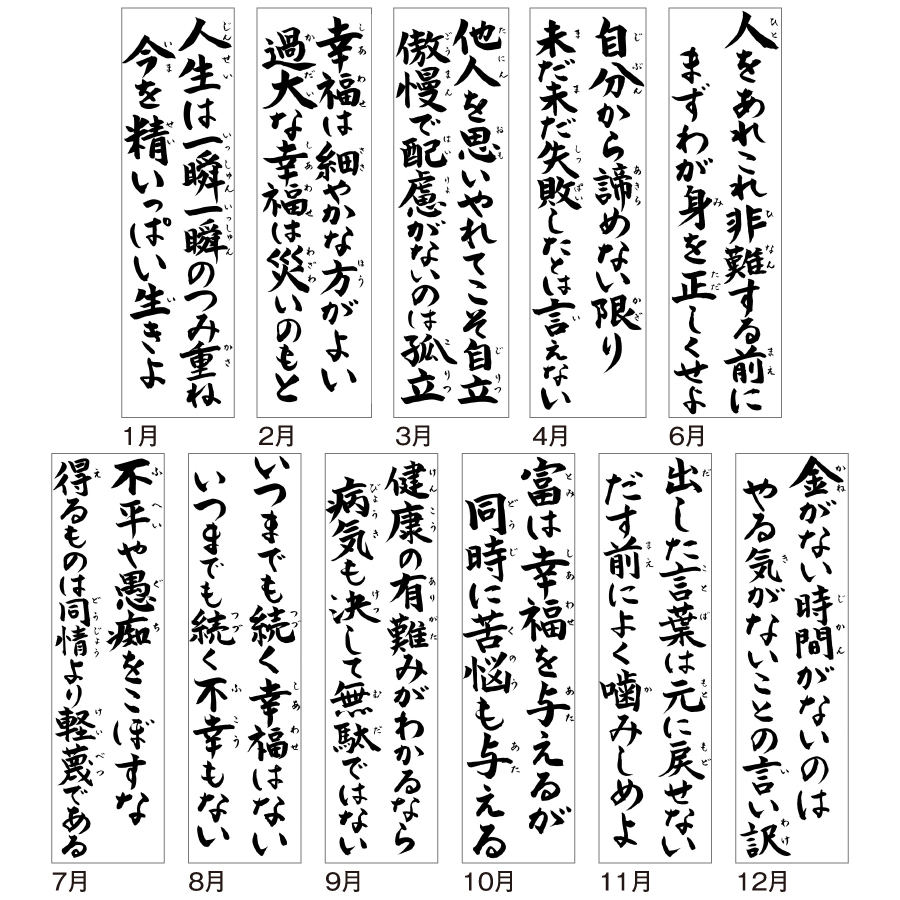 人生は一瞬一瞬のつみ重ね
今を精いっぱい生きよ
1月
幸福は細やかな方がよい
過大な幸福は災いのもと
2月
他人を思いやれてこそ自立
傲慢で配慮がないのは孤立
3月
自分から諦めない限り
未だ未だ失敗したとは言えない
4月
人をあれこれ非難する前に
まずわが身を正しくせよ
6月
不平や愚痴をこぼすな
得るものは同情より軽蔑である
7月
いつまでも続く幸福はない
いつまでも続く不幸もない
8月
健康の有難みがわかるなら
病気も決して無駄ではない
9月
富は幸福を与えるが
同時に苦悩も与える
10月
出した言葉は元に戻せない
だす前によく噛みしめよ
11月
金がない時間がないのは
やる気がないことの言い訳
12月